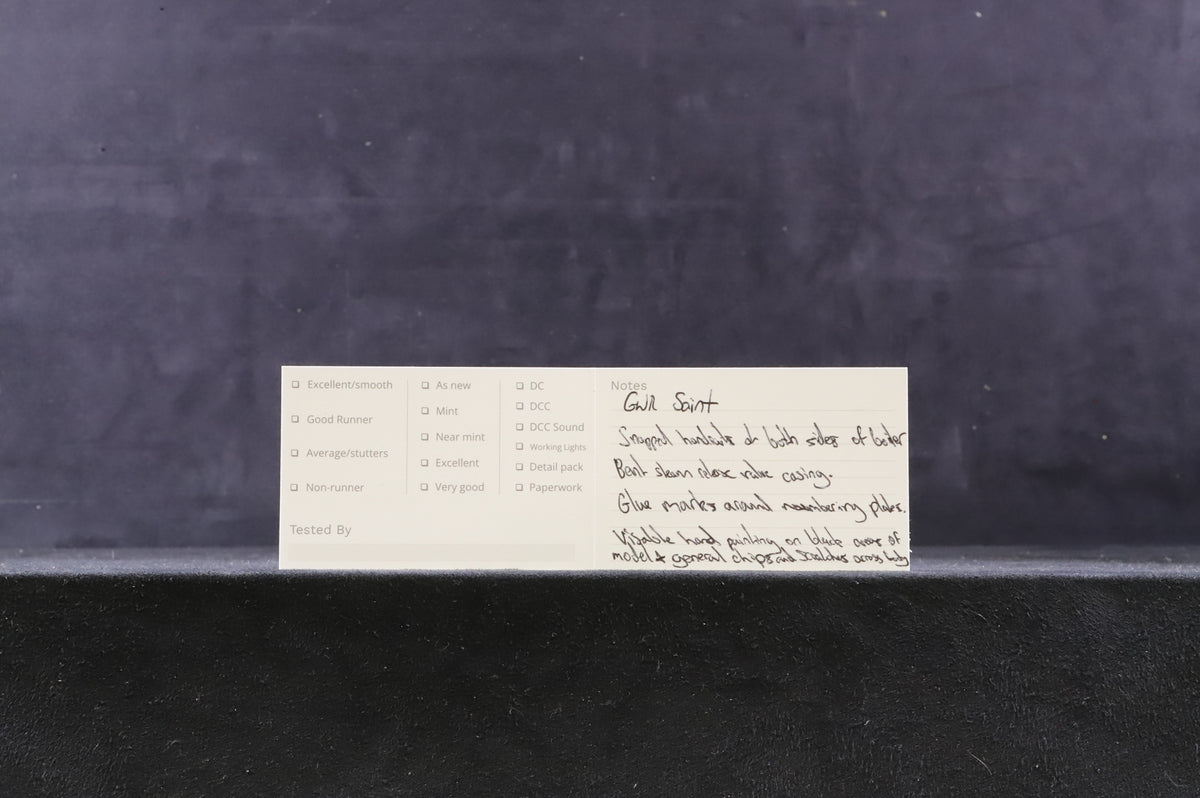 Excellent/smooth
Good Runner
Average/stutters
Non-runner
As new
Mint
Near mint
Excellent
Very good
DC
DCC
DCC Sound
Working Lights
Detail pack
Paperwork
Tested By
Notes
GWR Saint
Snapped on both sides of boiler
Bent steam valve casing.
Glue marks around numbering plates.
Visable hand painting on areas of
model & general chips and scratches across body